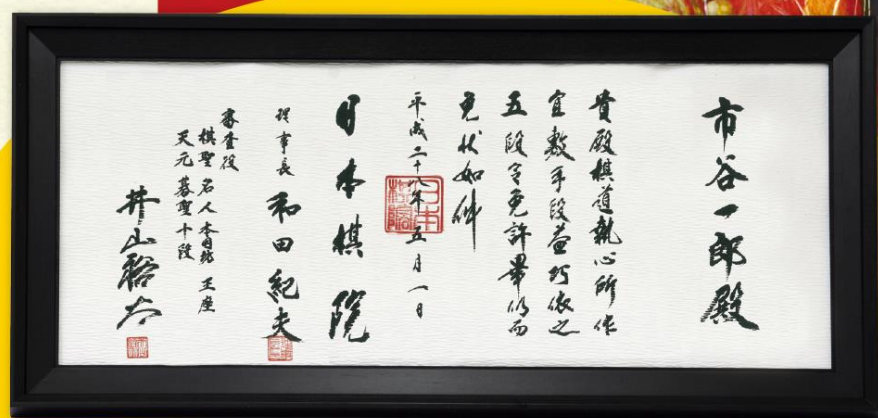 市谷一郎殿
貴殿棋道執心所作
宜敷手段益巧依之
五段令免許畢仍而
免状如件
平成二十八年五月一日
日本棋院
理事長 和田紀夫
審査役
棋聖 名人 本因坊 王座
天元 碁聖 十段
井山裕太